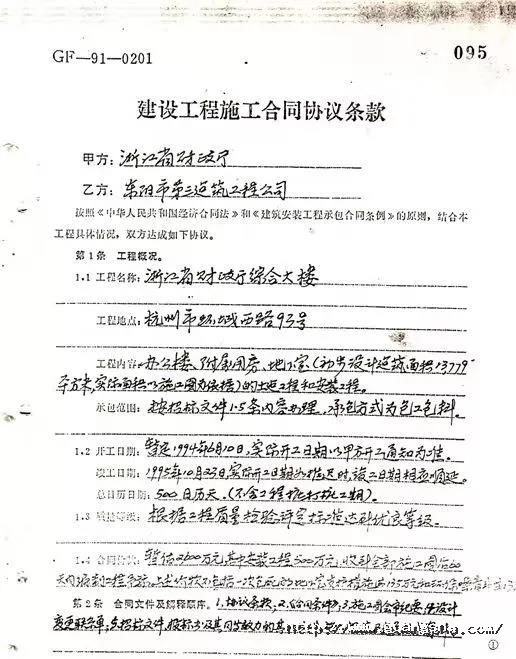 GF—91—0201
095
建设工程施工合同协议条款
甲方：浙江省财政厅
乙方：东阳市第三建筑工程公司
按照《中华人民共和国经济合同法》和《建筑安装工程承包合同条例》的原则，结合本
工程具体情况，双方达成如下协议。
第1条 工程概况。
1.1 工程名称：浙江省财政厅综合大楼
工程地点：杭州市环城西路93号
工程内容：办公楼、附属用房、地下室（初步设计建筑面积13779
平方米，实际面积以施工图为依据）的土建工程和安装工程。
承包范围：按招标文件1.5条内容办理，承包方式为包工包料。
1.2 开工日期：暂定1994年6月10日，实际开工日期以甲方开工通知为准。
竣工日期：1995年10月23日，实际开工日期如推迟时，竣工日期相应顺延。
总日历日期：500日历天，（不含工程桩打桩工期）。
1.3 质量等级：根据工程质量检验评定标准达到优良等级。
1.4 合同价款：暂估2600万元，其中安装工程500万元，收到全部施工图后60
天内
第2条 合同文件及解释顺序。1.协议条款，2.合同条件，3.施工图会审纪要、设计
变更联系单，招标文件，
①